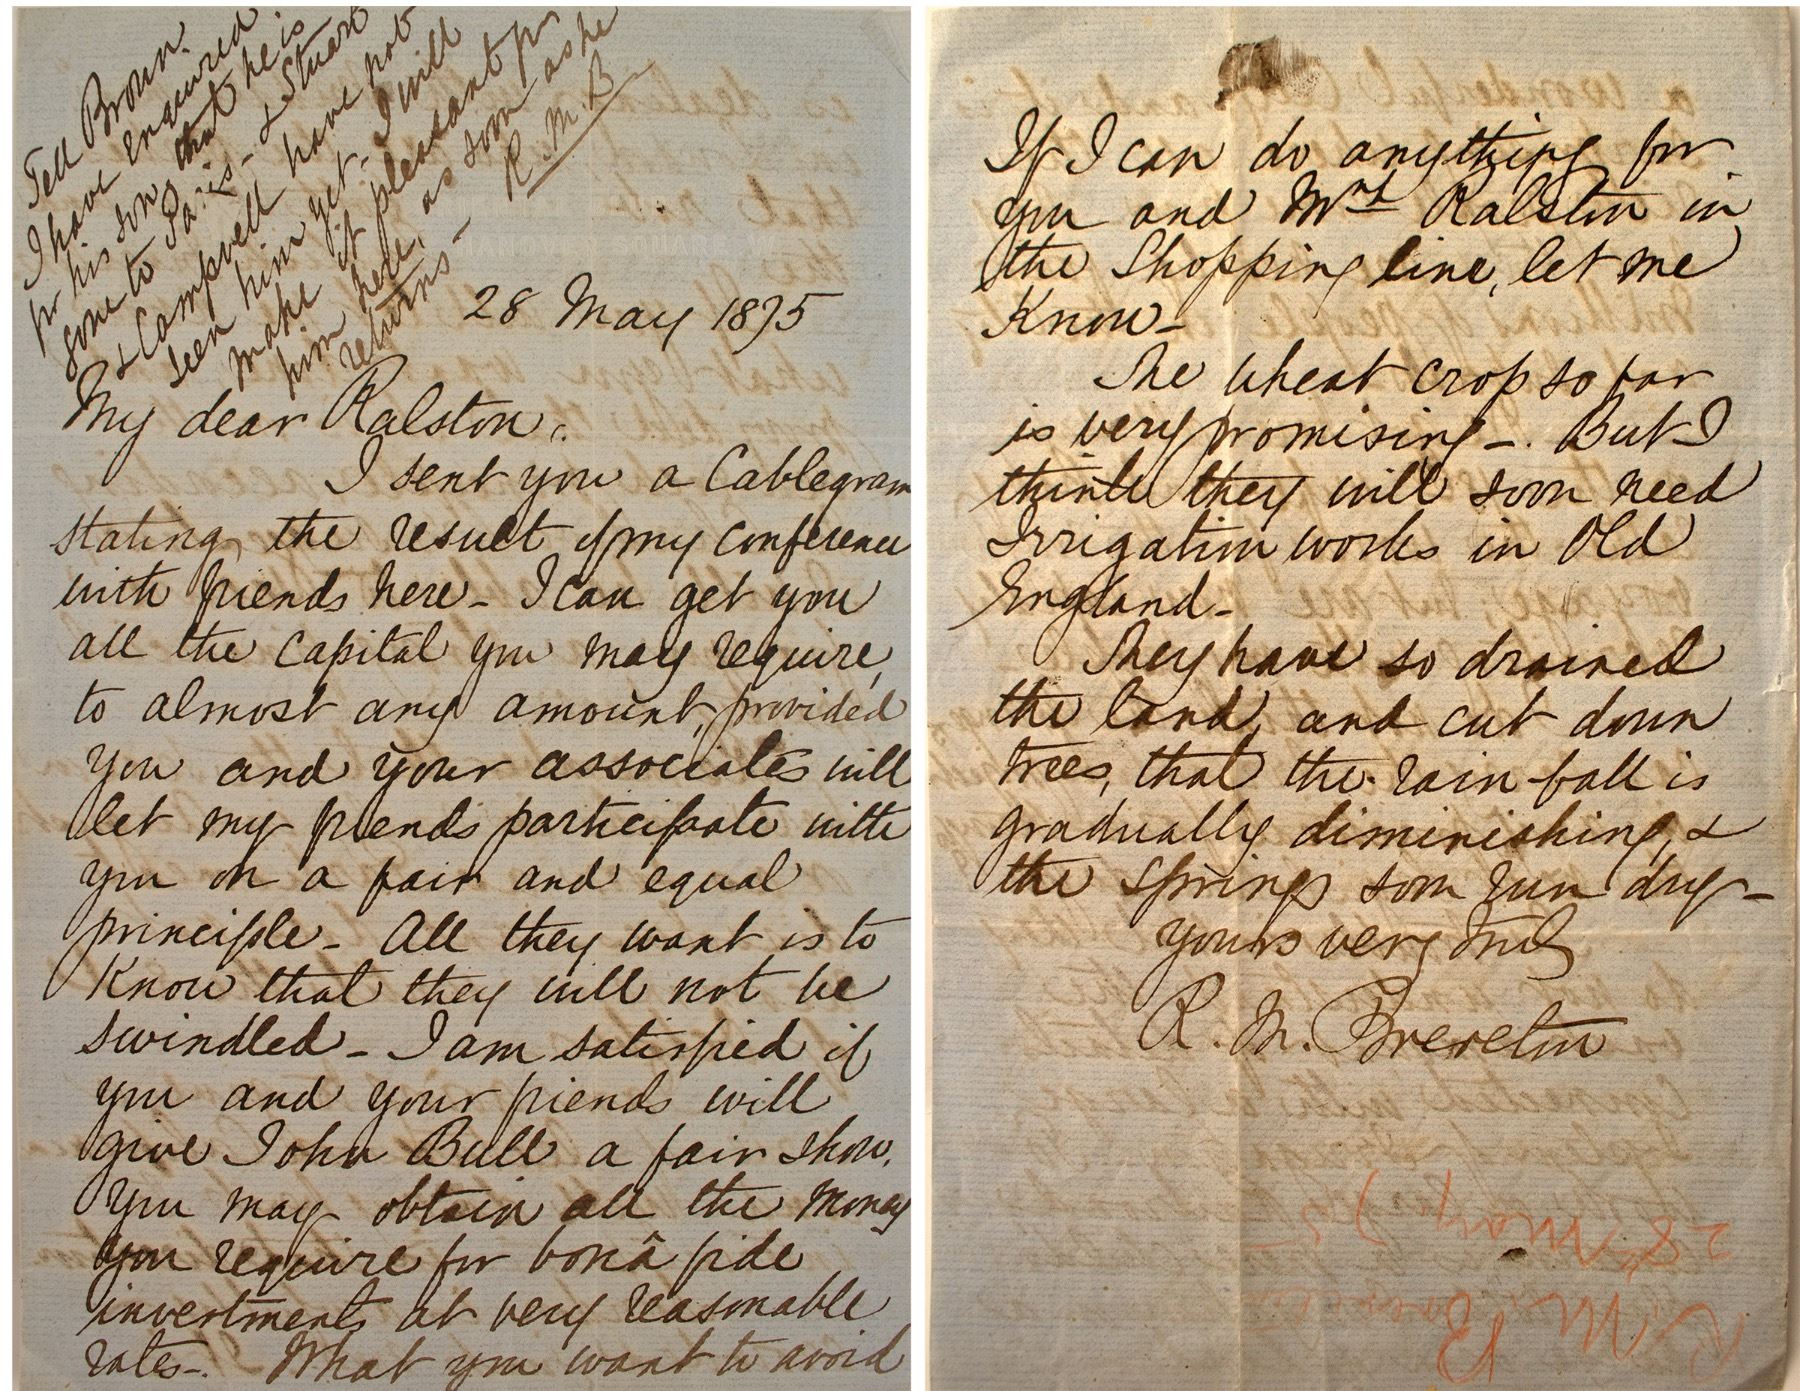 Tell Brown.
I have enquired
for his son, that he is
gone to Paris - & Stuart
& Campbell have not
seen him yet - I will
make it pleasant for
him here, as soon as he
returns -
R. M. B
28 May 1875
My dear Ralston,
I sent you a Cablegram
stating the result of my conference
with friends here - I can get you
all the capital you may require,
to almost any amount, provided
you and your associates will
let my friends participate with
you on a fair and equal
principle - All they want is to
know that they will not be
swindled - I am satisfied if
you and your friends will
give John Bull a fair show.
You may obtain all the money
you require for bonâ fide
investments at very reasonable
rates -. What you want to avoid
If I can do anything for
you and Mrs Ralston in
the Shopping line, let me
Know -
The wheat crop so far
is very promising -. But I
think they will soon need
Irrigation works in Old
England -
They have so drained
the land, and cut down
trees, that the rain fall is
gradually diminishing, &
the springs soon run dry -
yours very truly
R. M. Brereton
R. M. Brereton
28 May 75